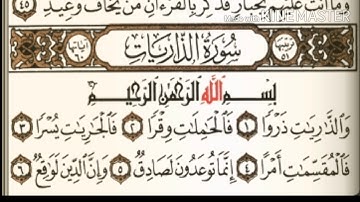 وَمَا أَنتَ عَلَيْهِم بِجَبَّارٍ فَذَكِّرْ بِالْقُرْءَانِ مَن يَخَافُ وَعِيدِ ٤٥
سُورَةُ الذَّارِيَات
بِسْمِ اللَّهِ الرَّحْمَٰنِ الرَّحِيمِ
وَالذَّٰرِيَٰتِ ذَرْوًا ١ فَالْحَٰمِلَٰتِ وِقْرًا ٢ فَالْجَٰرِيَٰتِ يُسْرًا ٣
فَالْمُقَسِّمَٰتِ أَمْرًا ٤ إِنَّمَا تُوعَدُونَ لَصَادِقٌ ٥ وَإِنَّ الدِّينَ لَوَٰقِعٌ ٦